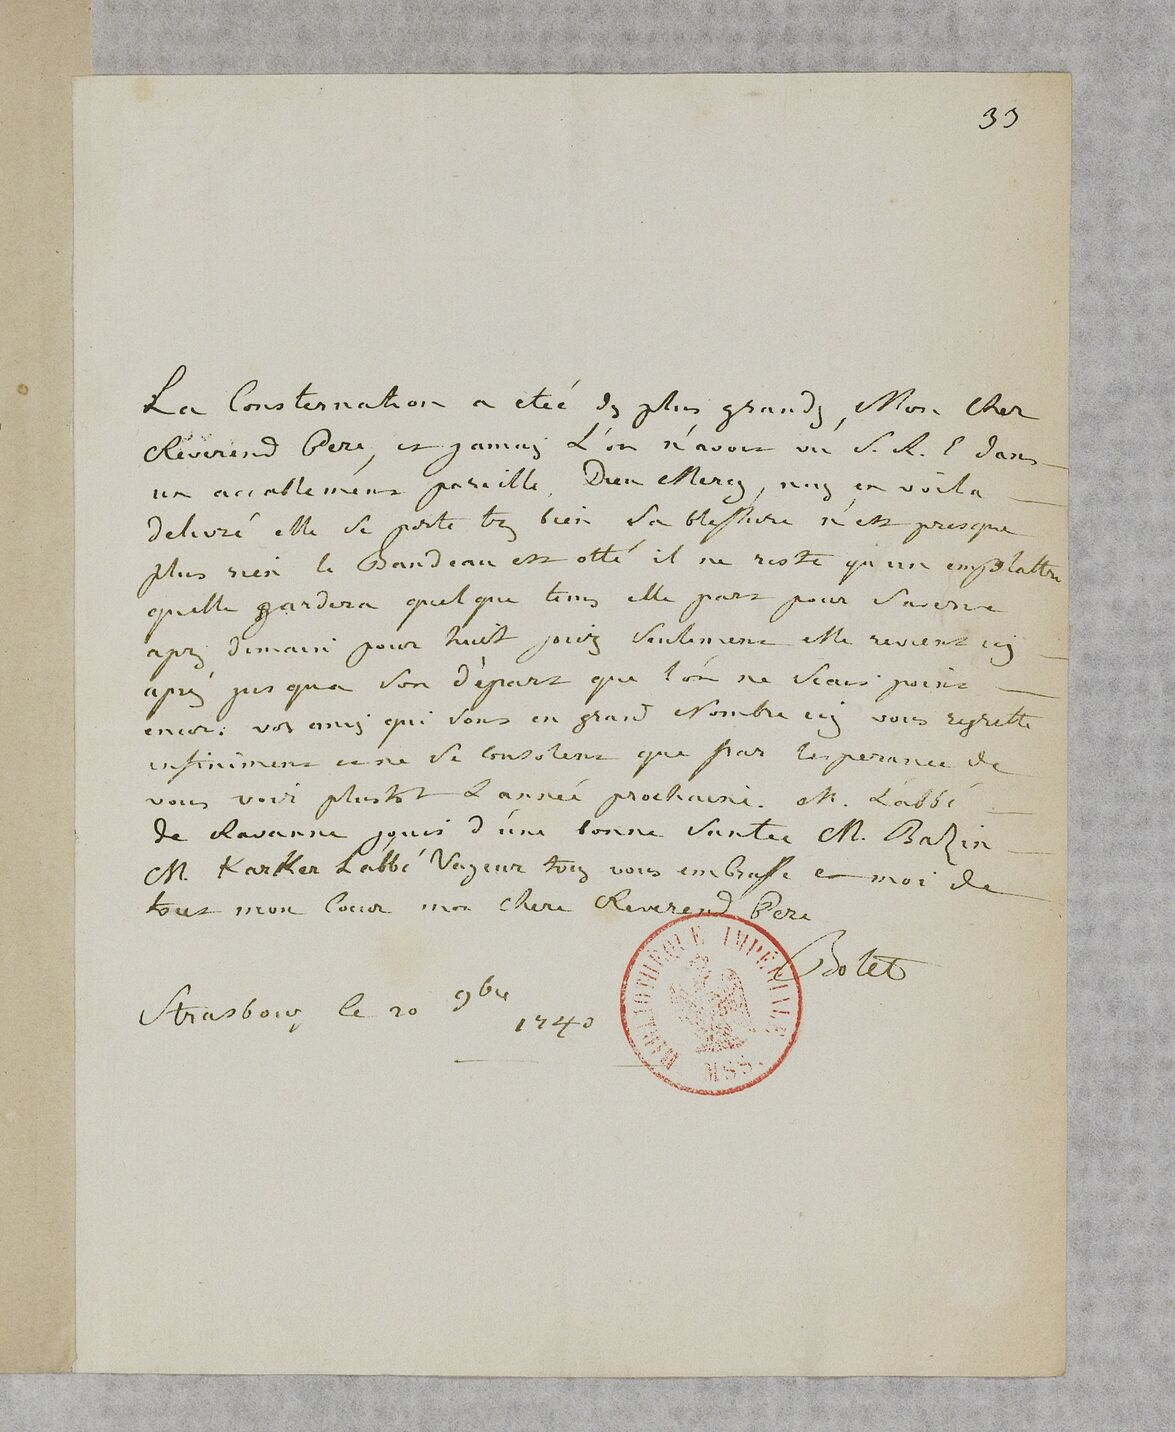 33
La Consternation a eteé ds plus grands, Mon Cher
Reverend Pere, et jamais L'on n'avoit vu S. A. E dans
un accablement pareille, Dieu Mercy, nous en voila
delivré elle se porte tres bien Sa blessure n'est presque
plus rien le Bandeau est otté il ne reste qu'un emplattre
quelle gardera quelque tems elle part pour Saverne
apres demain pour huit jours Seulement elle revient icy
apres jusqua Son départ que l'on ne Scait point
encor: vos amis qui Sont en grand Nombre icy vous regrette
infiniment et ne Se Consolent que par lesperance de
vous voir plustot L'année prochaine. M. L'abbé
de Ravanne jouis d'une bonne Santee M. Bazin
M. Karker L'abbé Vayeur tous vous embrasse et moi de
tout mon Coeur mon Chere Reverend Pere
Botet
Strasbourg le 20 9bre
1740
BIBLIOTHÈQUE IMPÉRIALE
MSS.